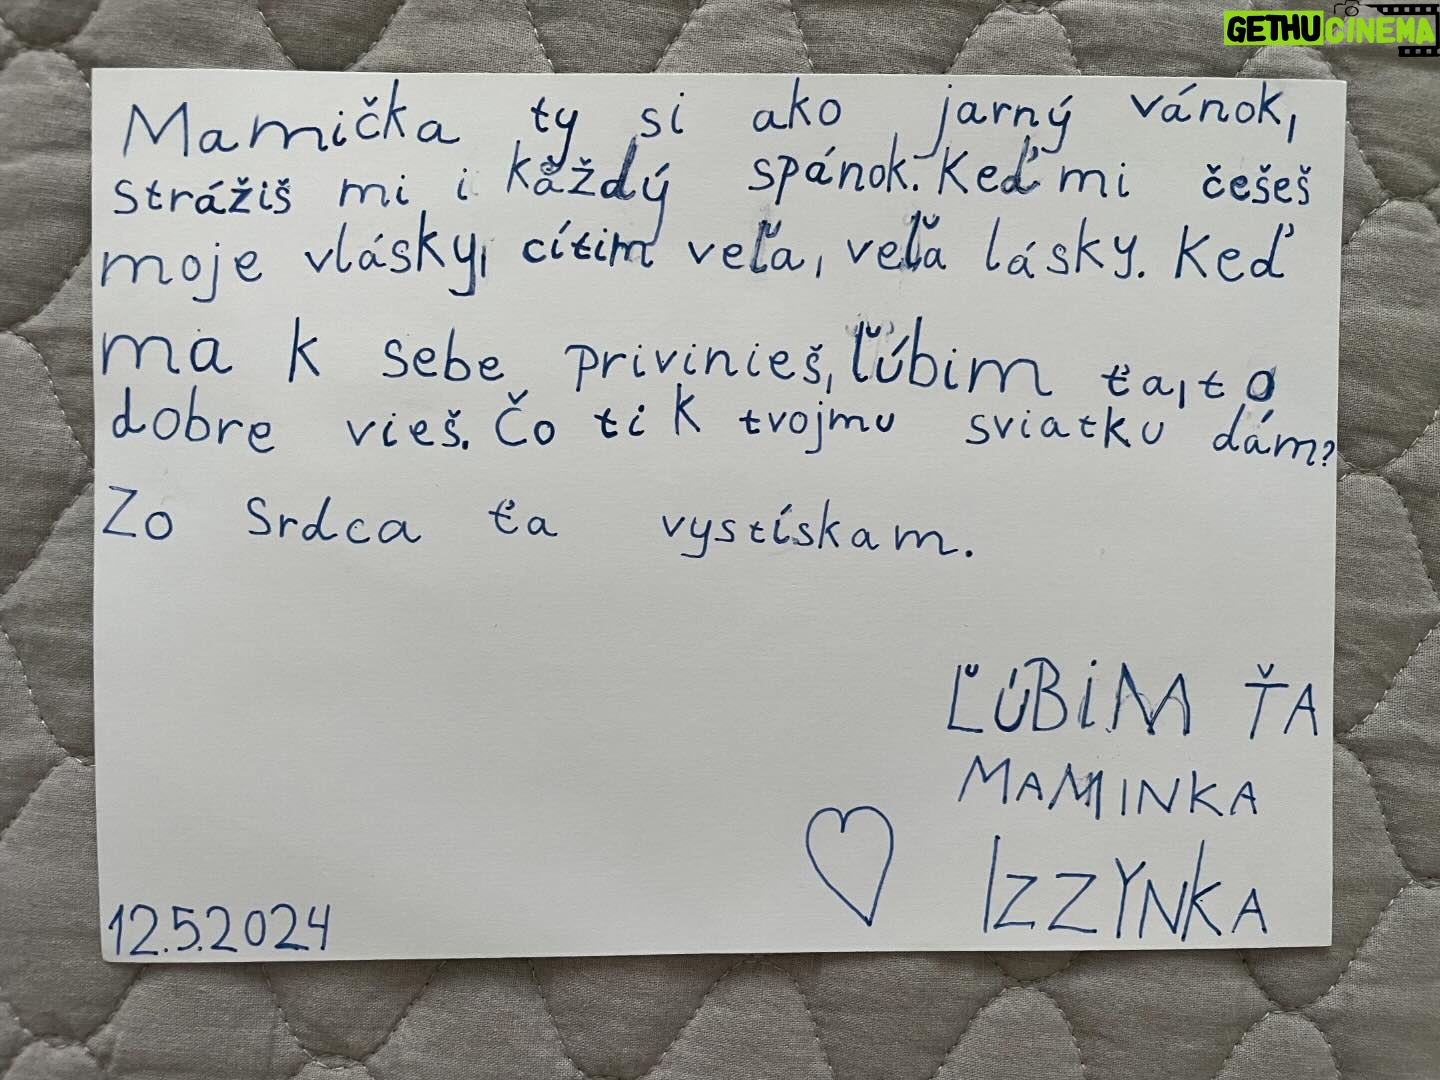 GETHU CINEMA
Mamička ty si ako jarný vánok,
strážiš mi i každý spánok. Keď mi češeš
moje vlásky, cítim veľa, veľa lásky. Keď
ma k sebe privinieš, ľúbim ťa, to
dobre vieš. Čo ti k tvojmu sviatku dám?
Zo srdca ťa vystískam.
ĽÚBIM ŤA
MAMINKA
IZZYNKA
12.5.2024